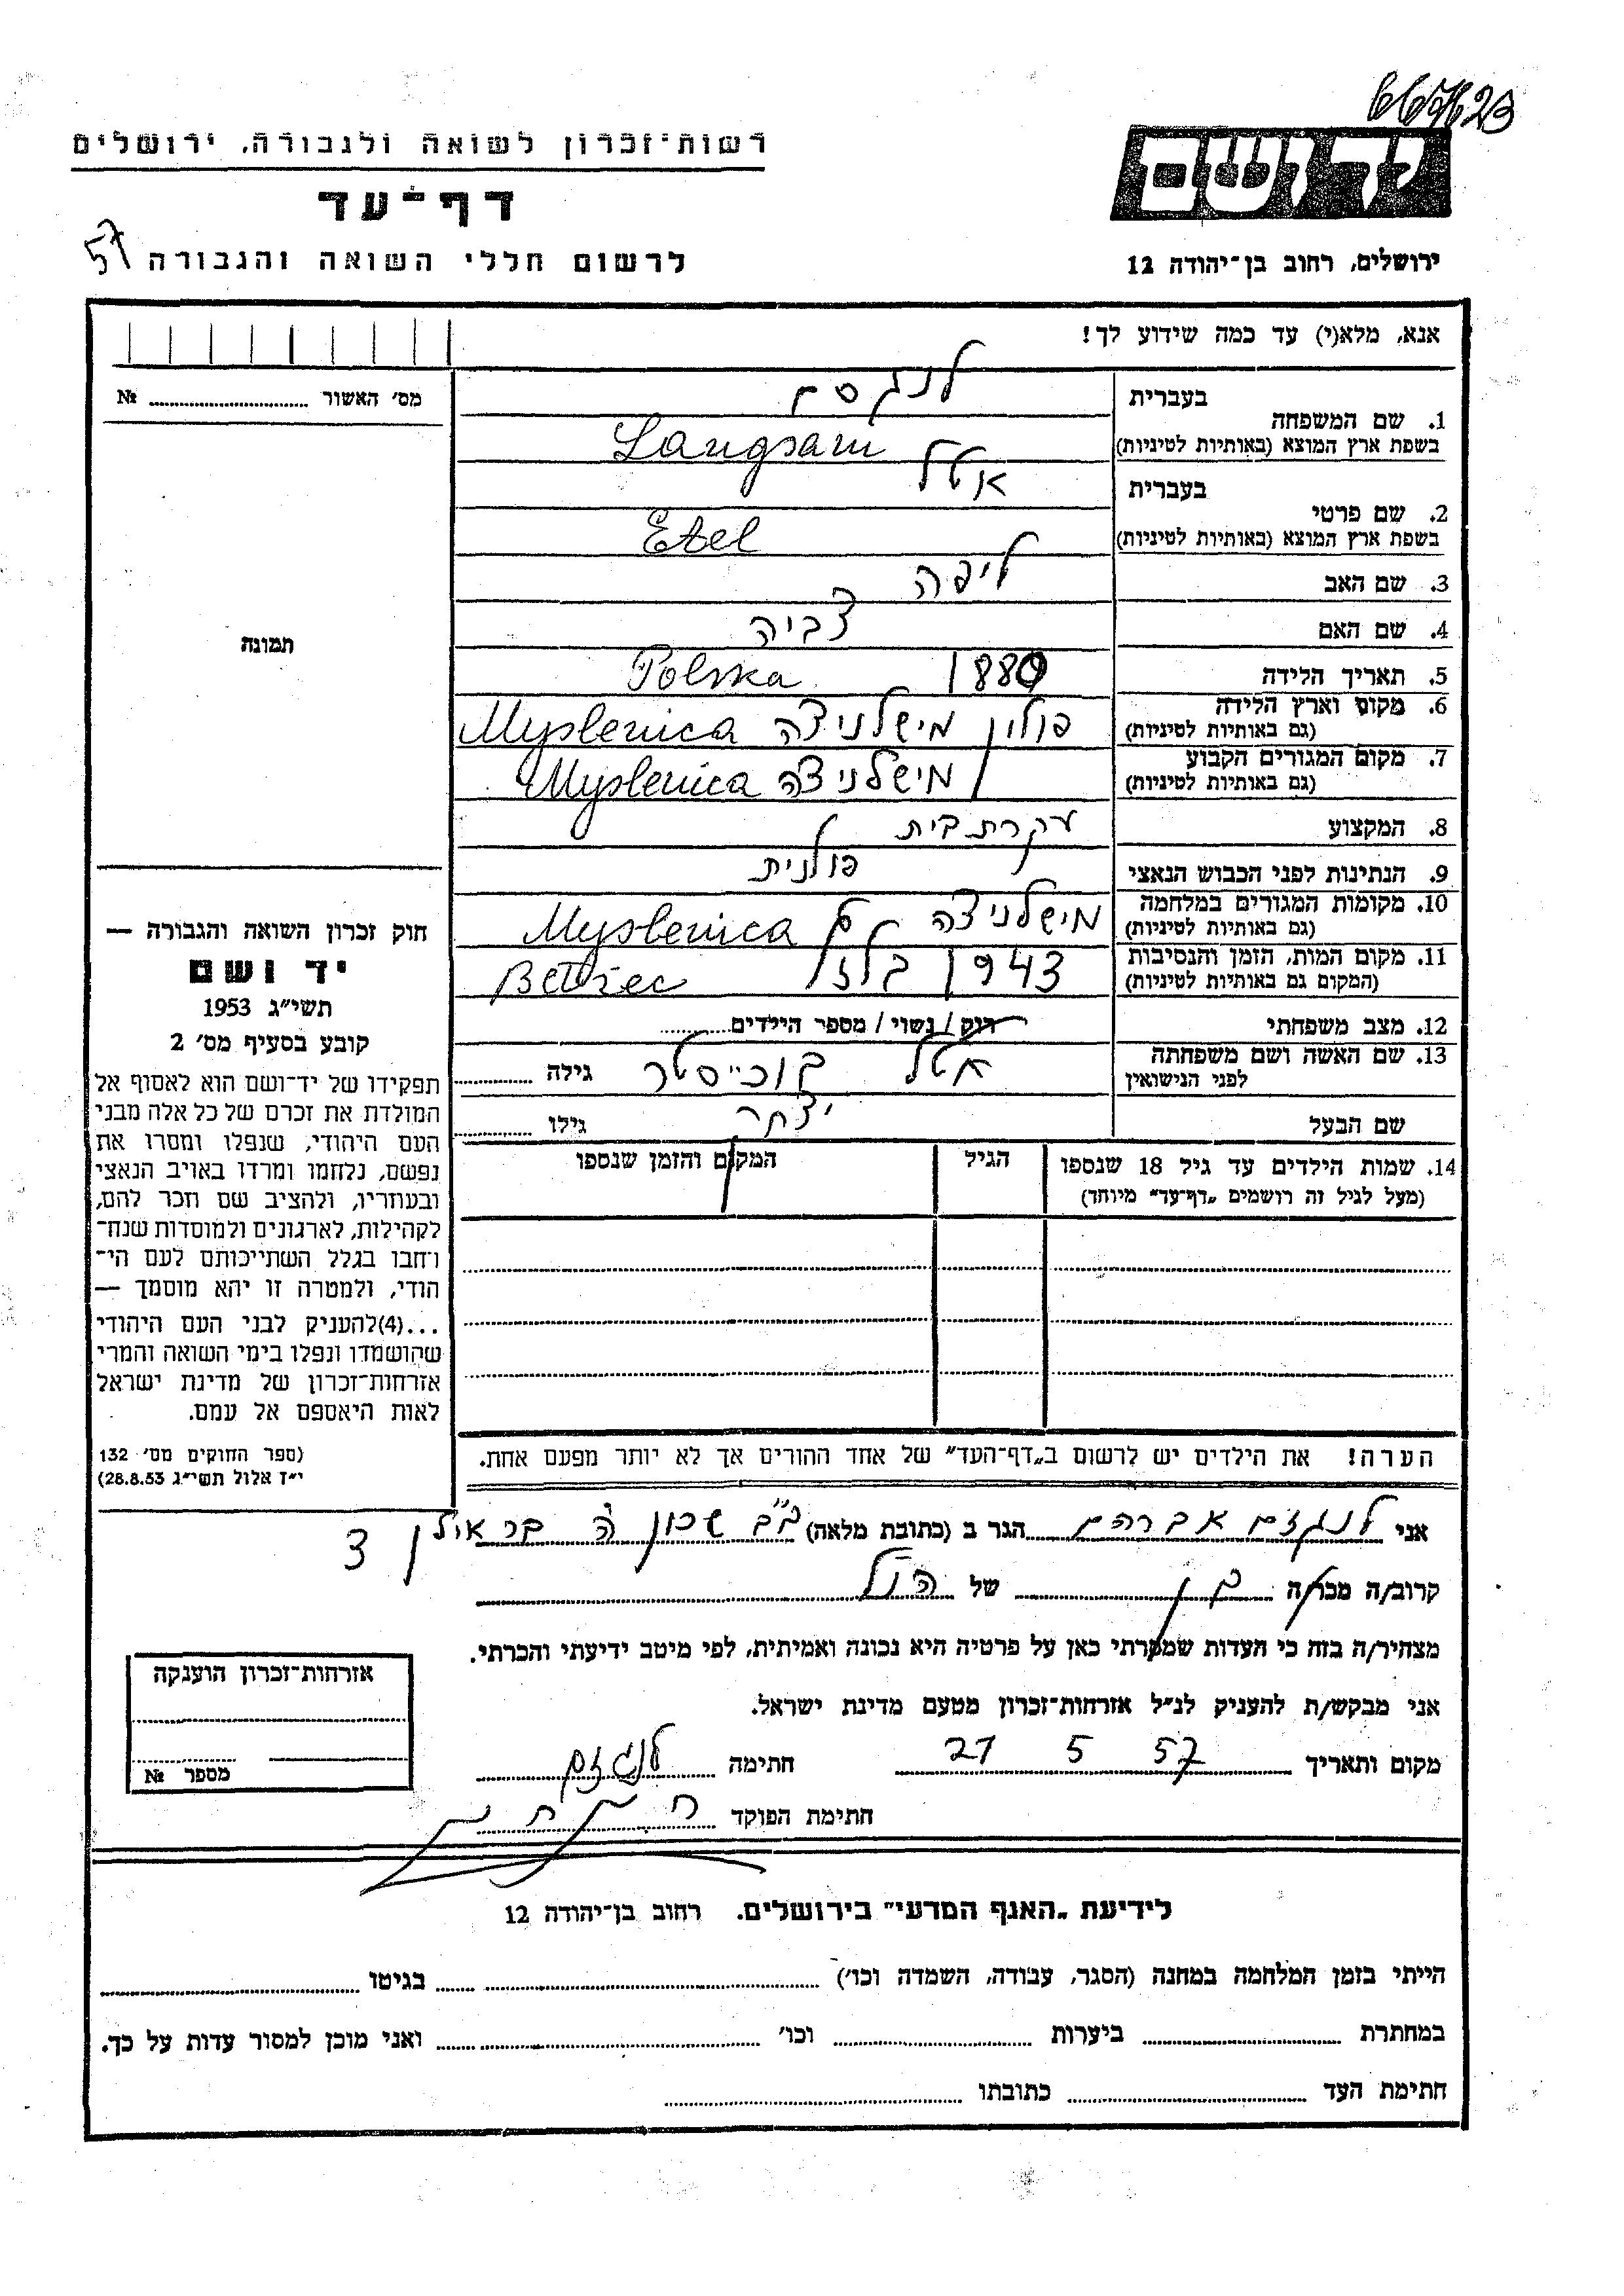 667623
רשות־זכרון לשואה ולגבורה, ירושלים
דף־עד
לרשום חללי השואה והגבורה
57
יד ושם
ירושלים, רחוב בן־יהודה 12
אנא, מלא(י) עד כמה שידוע לך!
מס' האשור № 
תמונה
בעברית לנגסם
1. שם המשפחה
בשפת ארץ המוצא (באותיות לטיניות) Langsam
בעברית אטל
2. שם פרטי
בשפת ארץ המוצא (באותיות לטיניות) Etel
3. שם האב ליפה
4. שם האם צביה
5. תאריך הלידה 1880 Polska
6. מקום וארץ הלידה
(גם באותיות לטיניות) פולין מישלניצה Myslenica
7. מקום המגורים הקבוע
(גם באותיות לטיניות) מישלניצה Myslenica
8. המקצוע עקרת בית
9. הנתינות לפני הכבוש הנאצי פולנית
10. מקומות המגורים במלחמה
(גם באותיות לטיניות) מישלניצה Myslenica
11. מקום המות, הזמן והנסיבות
(המקום גם באותיות לטיניות) 1943 בלז Bełżec
12. מצב משפחתי רוק / נשוי / מספר הילדים
13. שם האשה ושם משפחתה
לפני הנישואין אטל גילה
שם הבעל יצחק גילו
14. שמות הילדים עד גיל 18 שנספו
(מעל לגיל זה רושמים „דף־עד” מיוחד)
הגיל
המקום והזמן שנספו
חוק זכרון השואה והגבורה —
יד ושם
תשי״ג 1953
קובע בסעיף מס' 2
תפקידו של יד־ושם הוא לאסוף אל
המולדת את זכרם של כל אלה מבני
העם היהודי, שנפלו ומסרו את
נפשם, נלחמו ומרדו באויב הנאצי
ובעוזריו, ולהציב שם וזכר להם,
לקהילות, לארגונים ולמוסדות שנח־
רחבו בגלל השתייכותם לעם הי־
הודי, ולמטרה זו יהא מוסמך —
...(4) להעניק לבני העם היהודי
שהושמדו ונפלו בימי השואה והמרי
אזרחות־זכרון של מדינת ישראל
לאות היאספם אל עמם.
(ספר החוקים מס' 132
י״ז אלול תשי״ג 28.8.53)
הערה! את הילדים יש לרשום ב„דף־העד” של אחד ההורים אך לא יותר מפעם אחת.
אני לנגזם אברהם הגר ב (כתובת מלאה) ב״ב שכון ה' בר אילן 3
קרוב/ה מכר/ה בן של הנ״ל
מצהיר/ה בזה כי העדות שמסרתי כאן על פרטיה היא נכונה ואמיתית, לפי מיטב ידיעתי והכרתי.
אני מבקש/ת להעניק לנ״ל אזרחות־זכרון מטעם מדינת ישראל.
מקום ותאריך 21 5 57 חתימה לנגזם
חתימת הפוקד
אזרחות־זכרון הוענקה
מספר №
לידיעת „האגף המדעי” בירושלים. רחוב בן־יהודה 12
הייתי בזמן המלחמה במחנה (הסגר, עבודה, השמדה וכו') בגיטו
במחתרת ביערות וכו' ואני מוכן למסור עדות על כך.
חתימת העד כתובתו